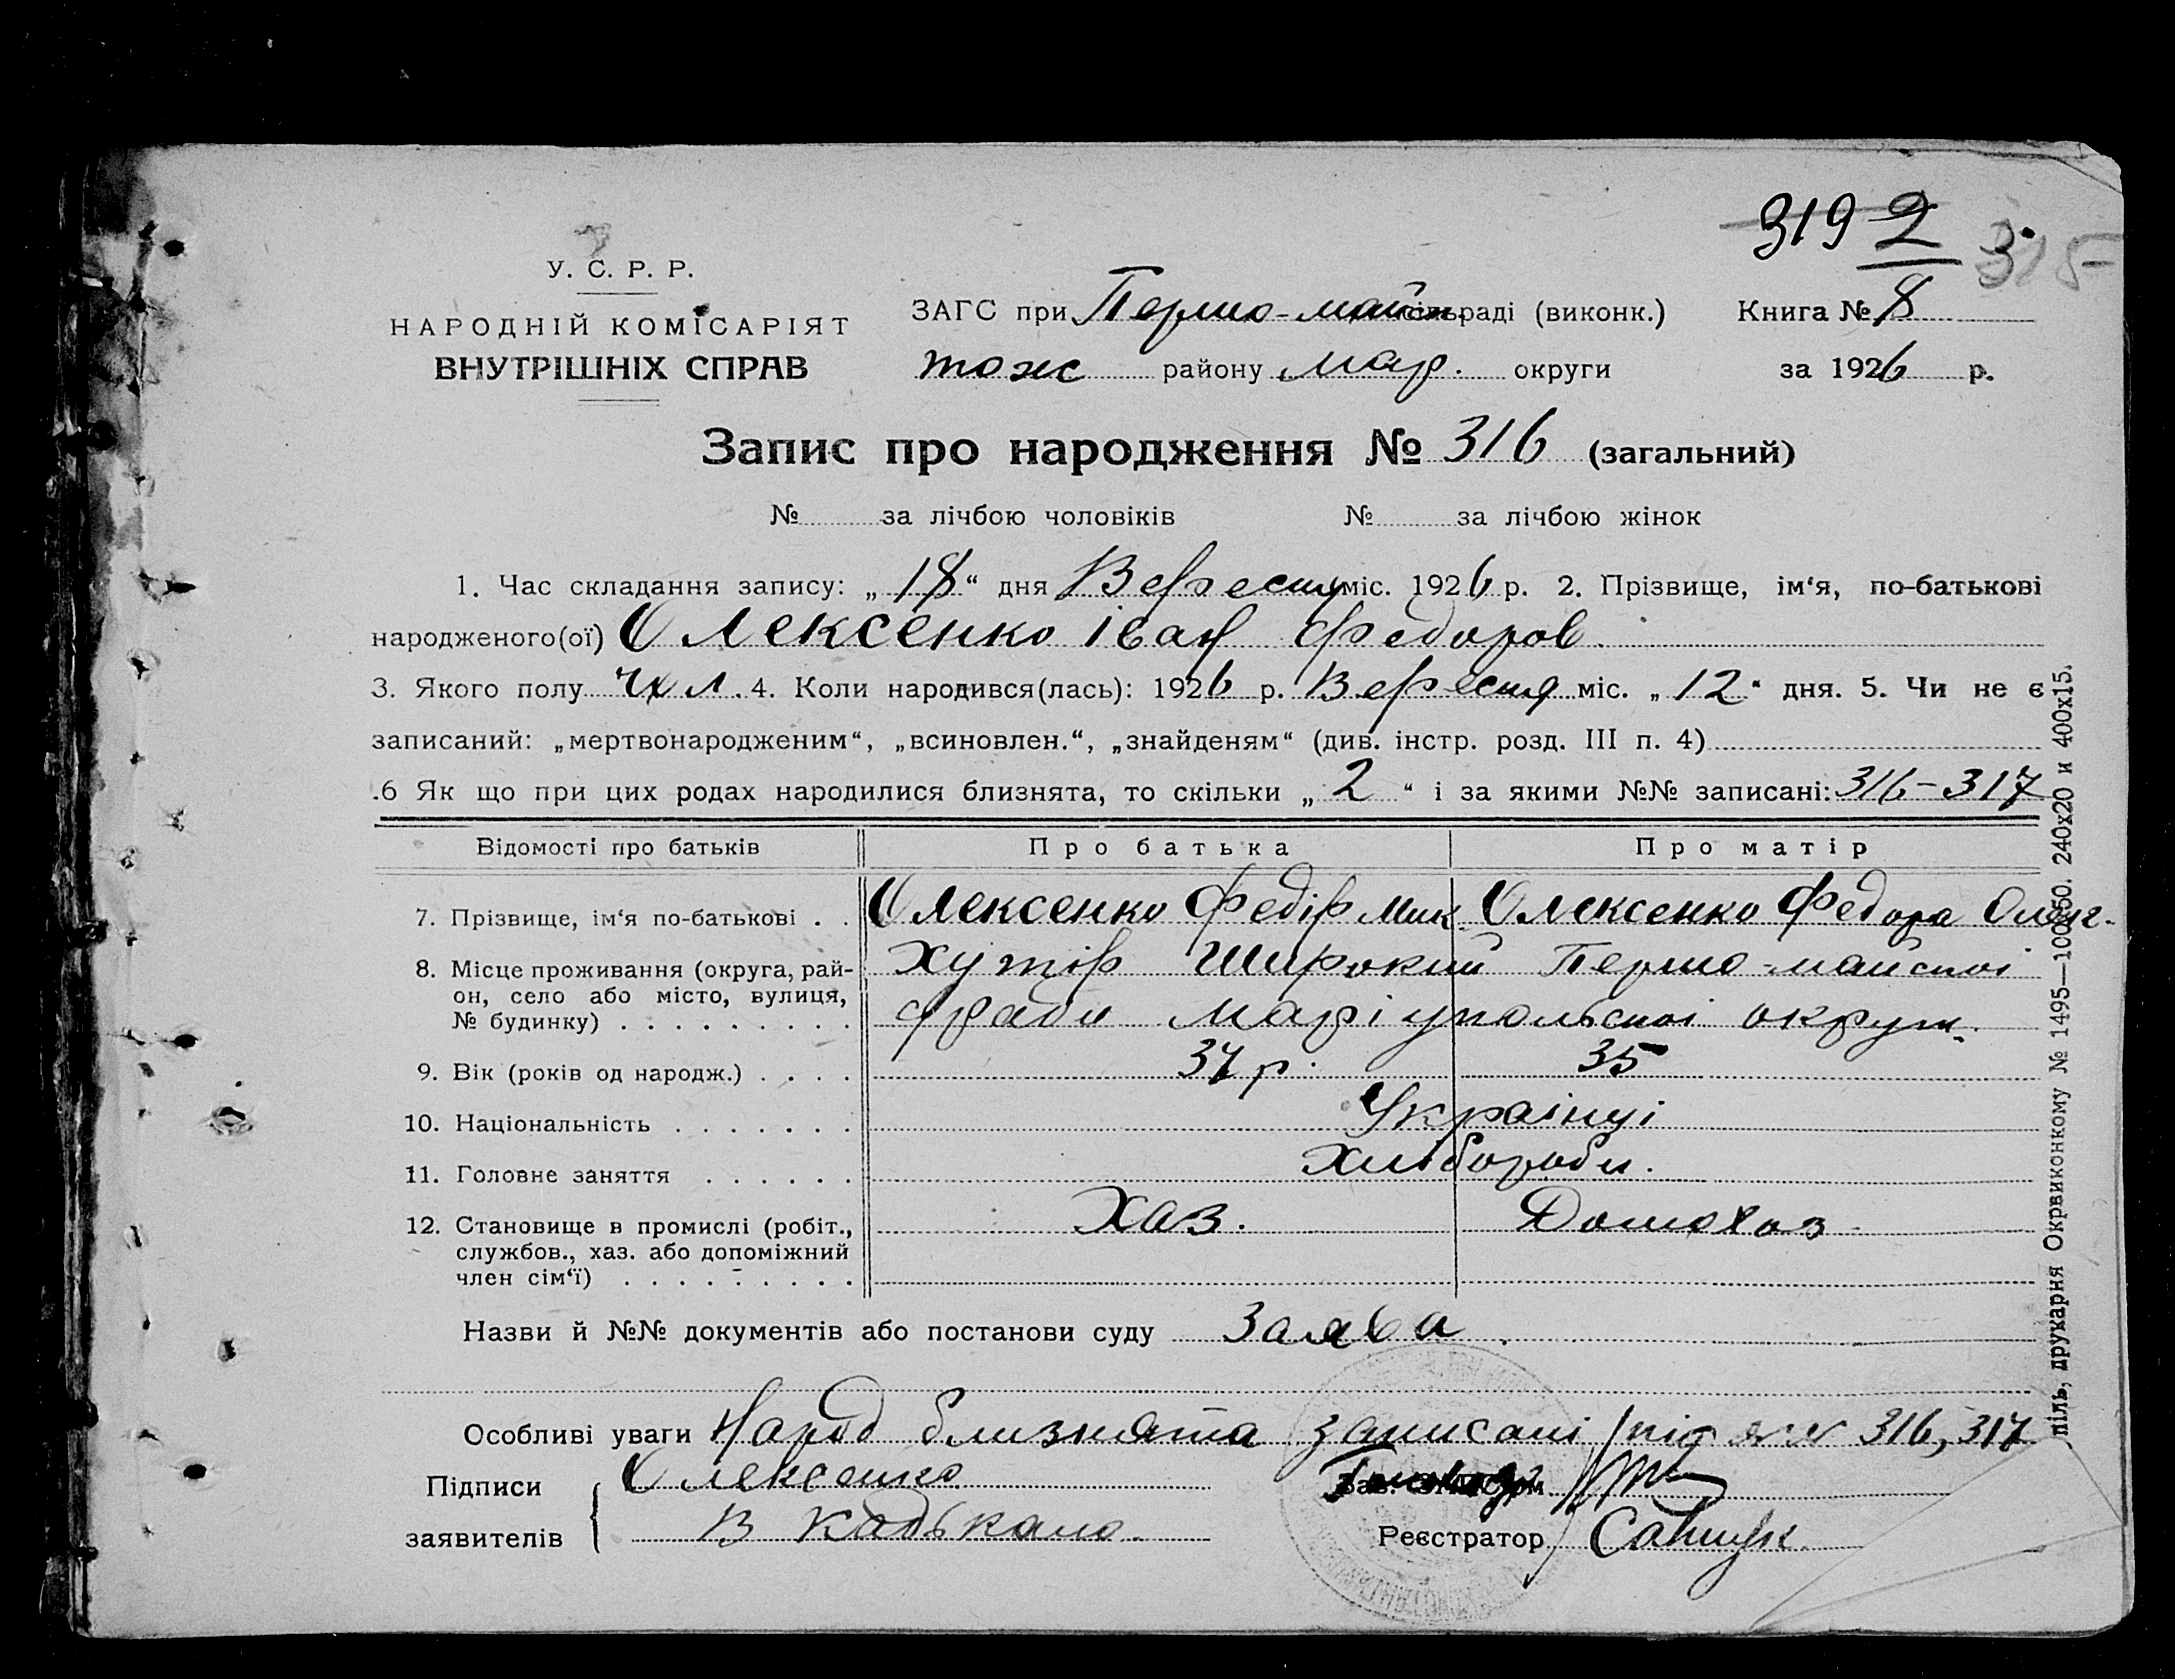 319 2 315
У. С. Р. Р.
НАРОДНІЙ КОМІСАРІЯТ
ВНУТРІШНІХ СПРАВ
ЗАГС при Першо-майск. сільраді (виконк.) Книга № 8
тож району Мар. округи за 1926 р.
Запис про народження № 316 (загальний)
№ за лічбою чоловіків № за лічбою жінок
1. Час складання запису: „18“ дня Вересня міс. 1926 р. 2. Прізвище, ім‘я, по-батькові
народженого(ої) Олексенко Іван Федоров
3. Якого полу чол. 4. Коли народився(лась): 1926 р. Вересня міс. „12“ дня. 5. Чи не є
записаний: „мертвонародженим“, „всиновлен.“, „знайденям“ (див. інстр. розд. III п. 4)
.6 Як що при цих родах народилися близнята, то скільки „2“ і за якими №№ записані: 316-317
Відомості про батьків Про батька Про матір
7. Прізвище, ім‘я по-батькові . . Олексенко Федір Мик. Олексенко Федора
8. Місце проживання (округа, рай- хутір Широкий Першо-майської
он, село або місто, вулиця, с/ради Маріупольської округи.
№ будинку) . . . . . . . . .
9. Вік (років од народж.) . . . . 37 р. 35
10. Національність . . . . . . . Українці
11. Головне заняття . . . . . . Хлібороби.
12. Становище в промислі (робіт., Хаз. Домохаз
службов., хаз. або допоміжний
член сім‘ї) . . . . . . . . .
Назви й №№ документів або постанови суду Заява
Особливі уваги Народ близнята записані під №№ 316, 317
Підписи Олексенко
заявителів В Кадькало
Реєстратор
піль, друкарня Окрвиконкому № 1495—100х50. 240х20 и 400х15.